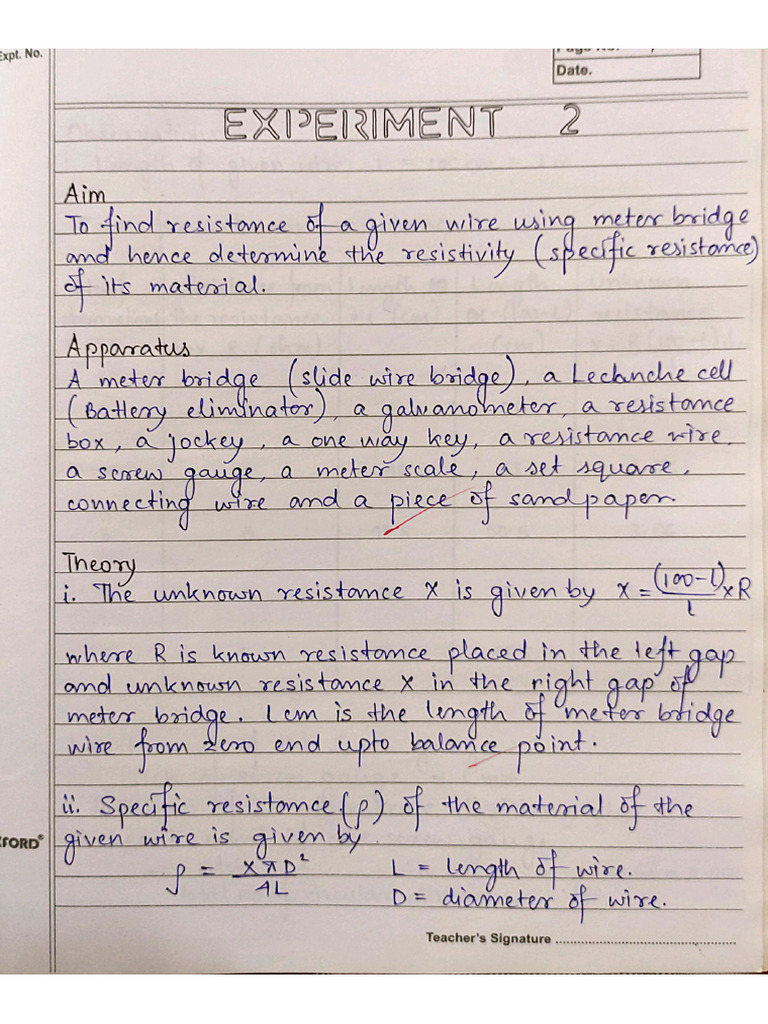 Expt. No.
Page No.
Date.
EXPERIMENT 2
Aim
To find resistance of a given wire using meter bridge
and hence determine the resistivity (specific resistance)
of its material.
Apparatus
A meter bridge (slide wire bridge), a Leclanche cell
(Battery eliminator), a galvanometer, a resistance
box, a jockey, a one way key, a resistance wire,
a screw gauge, a meter scale, a set square,
connecting wire and a piece of sand paper.
Theory
i. The unknown resistance X is given by X = (100-l)/l × R
where R is known resistance placed in the left gap
and unknown resistance X in the right gap of
meter bridge. l cm is the length of meter bridge
wire from zero end upto balance point.
ii. Specific resistance (ρ) of the material of the
given wire is given by
ρ = XπD²/4L L = length of wire.
D = diameter of wire.
XFORD®
Teacher's Signature